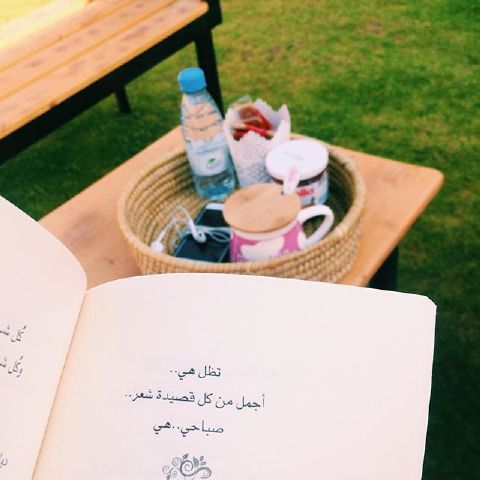 تظل هي..
أجمل من كل قصيدة شعر..
صباحي..هي
كُل
وكُل